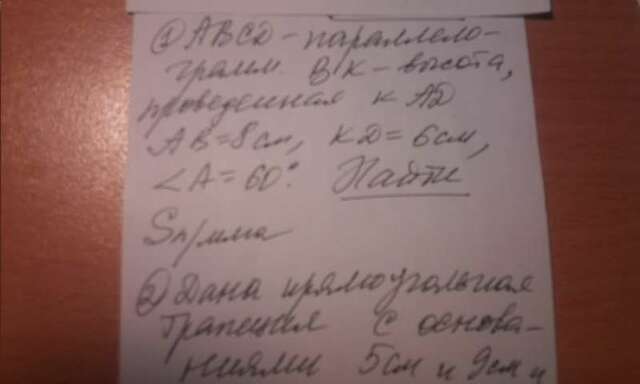 ① ABCD - параллело-
грамм. BK - высота,
проведенная к AD
AB = 8 см, KD = 6 см,
∠A = 60°. Найти
Sп/мма
② Дана прямоугольная
трапеция с основа-
ниями 5 см и 9 см и